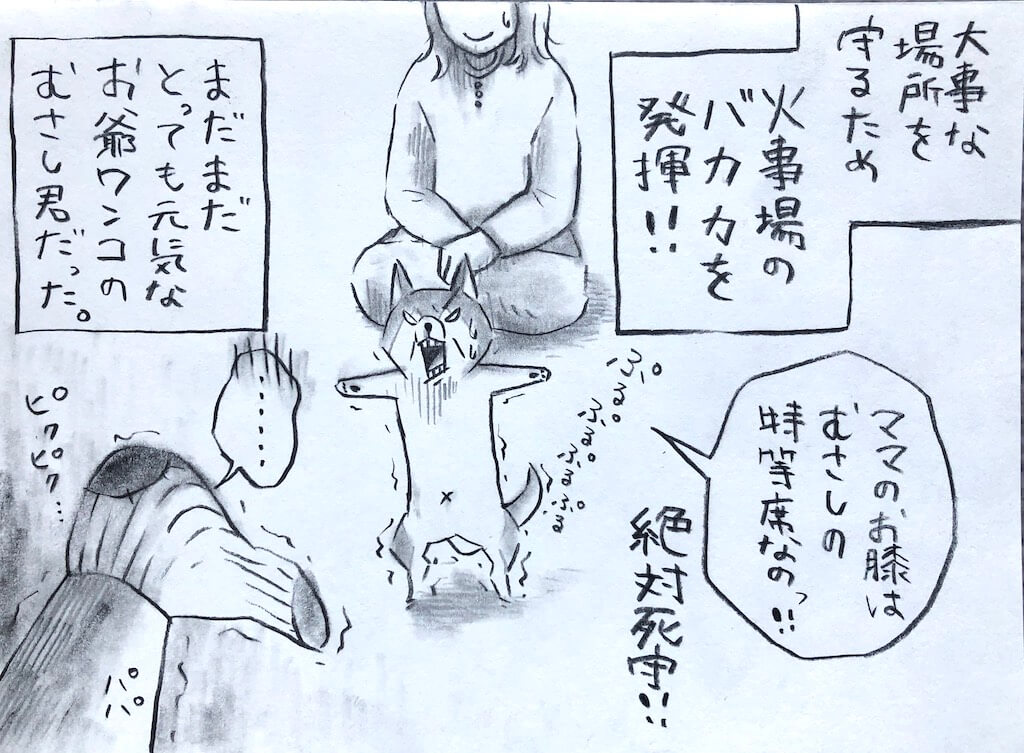 大事な
場所を
守るため
火事場の
バカ力を
発揮!!
ママのお膝は
むさしの
特等席なのっ!!
絶対死守!!
ぷる。
ぷるぷるぷる
まだまだ
とっても元気な
お爺ワンコの
むさし君だった。
……
ピクピク…
パパ